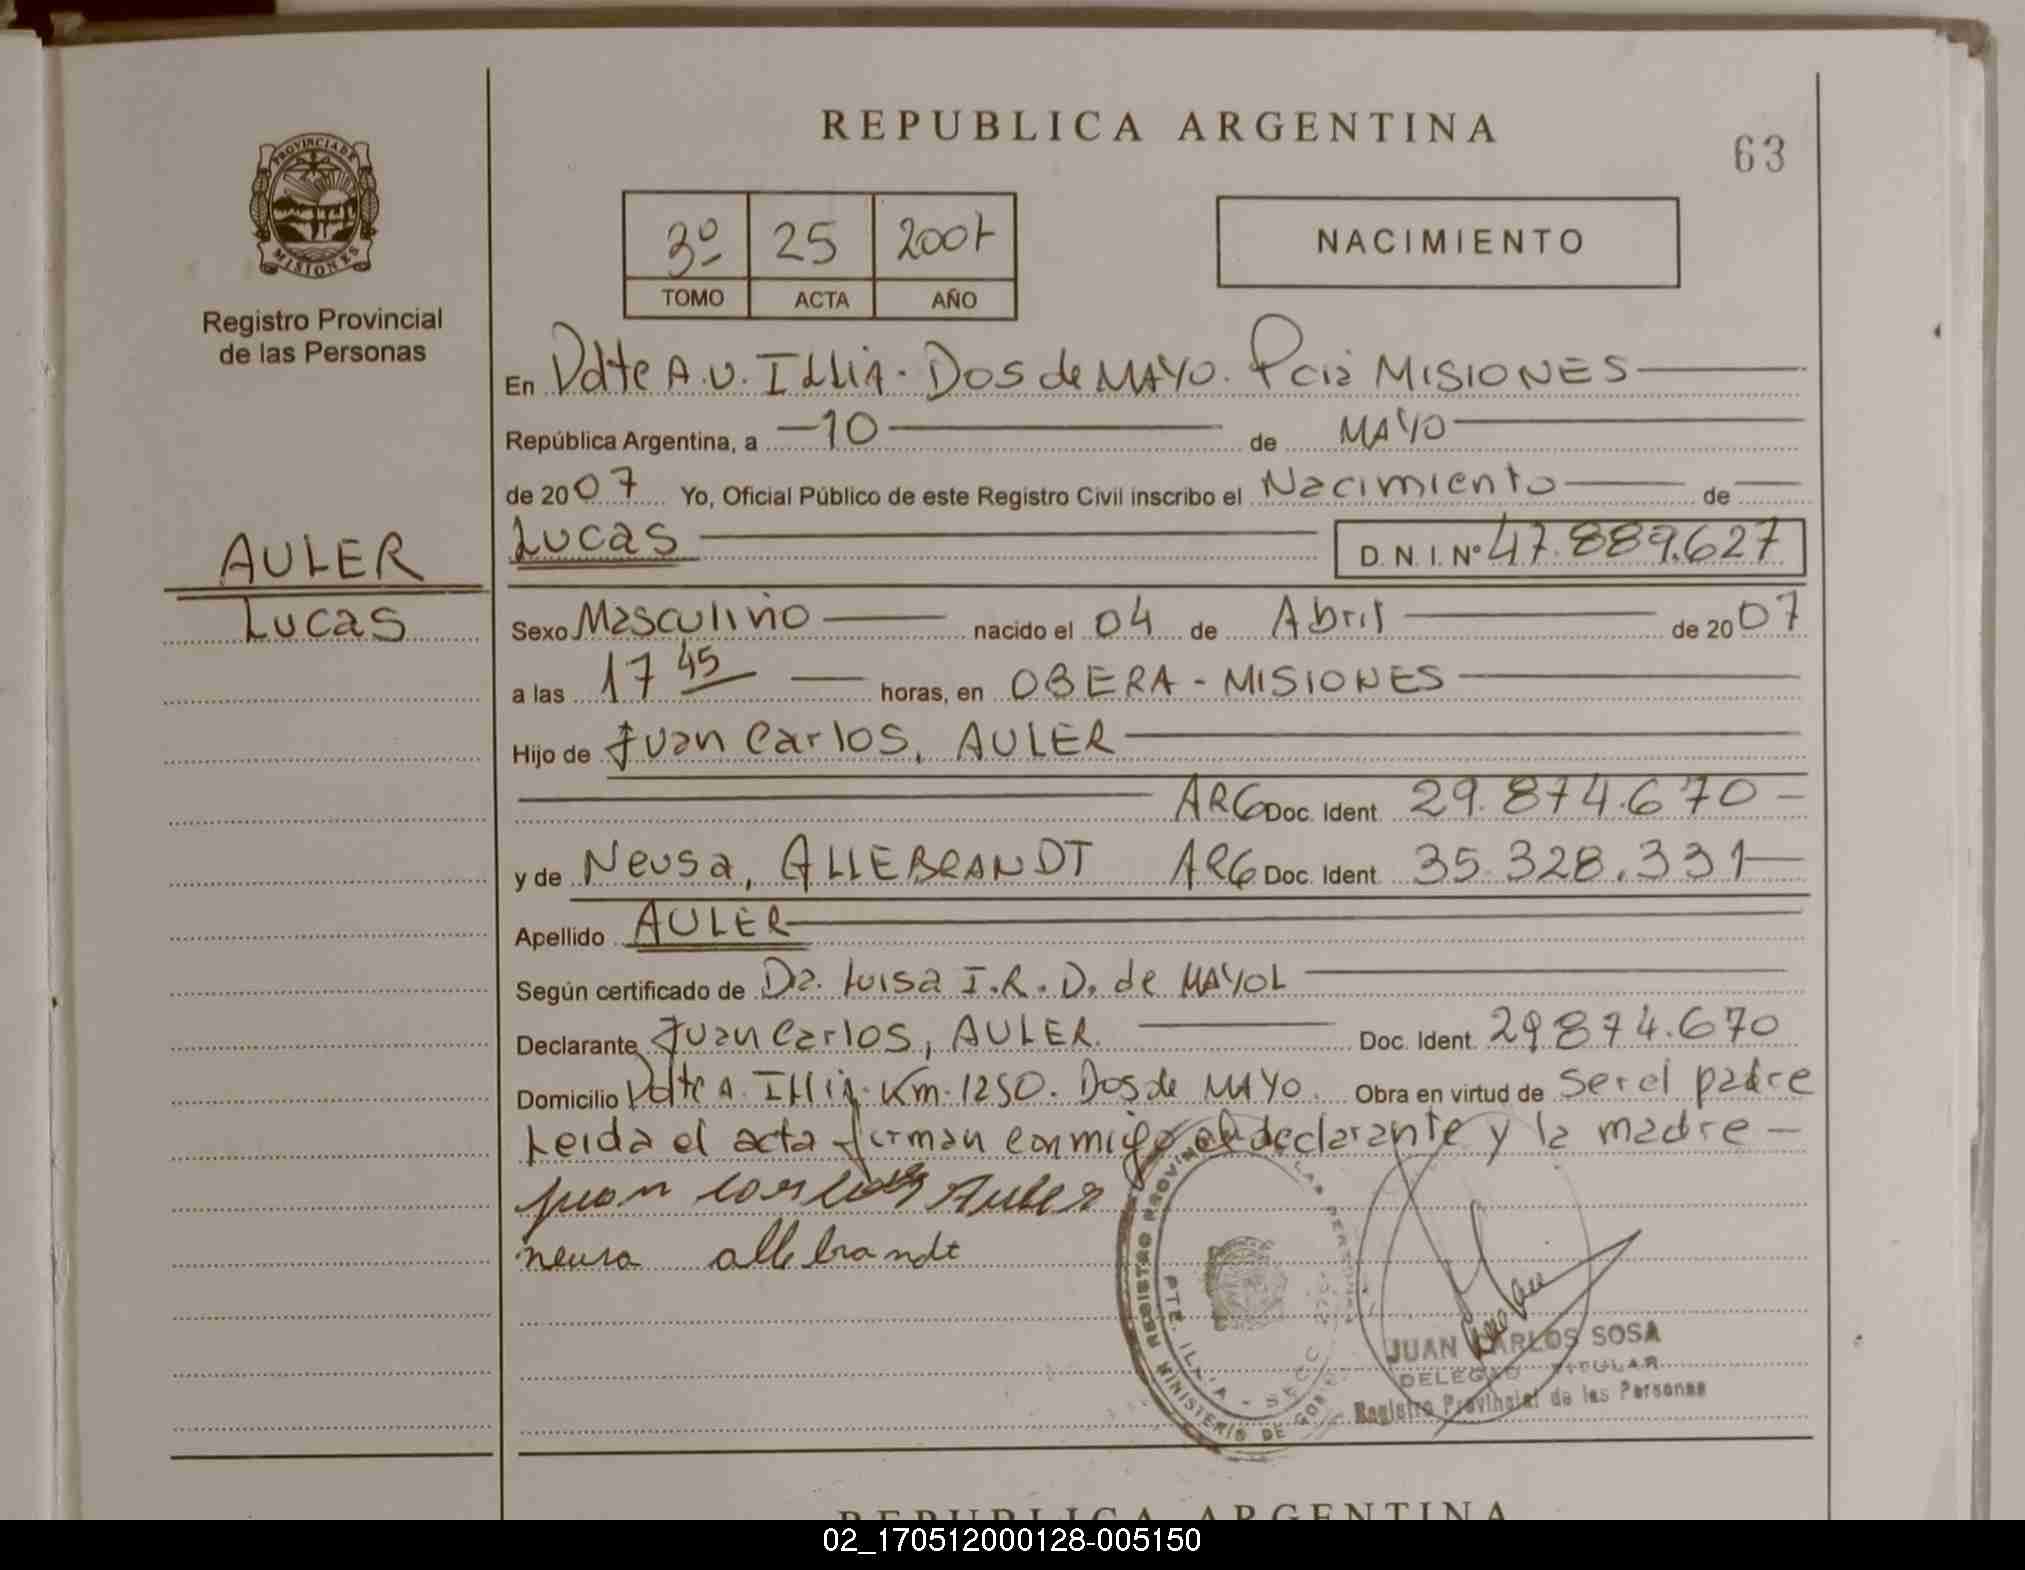 REPUBLICA ARGENTINA
63
PROVINCIA DE
MISIONES
Registro Provincial
de las Personas
3º 25 2007
TOMO ACTA AÑO
NACIMIENTO
En Pdte A.U. ILLIA. Dos de MAYO. Pcia MISIONES
República Argentina, a 10 de MAYO
de 2007 Yo, Oficial Público de este Registro Civil inscribo el Nacimiento de
AULER
Lucas
Lucas D. N. I. Nº 47.889.627
Sexo Masculino nacido el 04 de Abril de 2007
a las 17 45 horas, en OBERA - MISIONES
Hijo de Juan Carlos, AULER
ARG Doc. Ident. 29.874.670
y de Neusa, ALLEBRANDT ARG Doc. Ident. 35.328.331
Apellido AULER
Según certificado de Da. Luisa I.R.D. de MAYOL
Declarante Juan Carlos, AULER. Doc. Ident. 29.874.670
Domicilio Pdte A. Illia. Km. 1250. Dos de MAYO. Obra en virtud de ser el padre
Leida el acta firman conmigo el declarante y la madre
juan carlos Auler
neusa allebrandt
REGISTRO PROVINCIAL DE LAS PERSONAS
PTE. ILLIA - SECC
MINISTERIO DE GOBIE
JUAN CARLOS SOSA
DELEGADO TITULAR
Registro Provincial de las Personas
REPUBLICA ARGENTINA
02_170512000128-005150